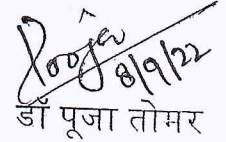 Pooja
8/9/22
डॉ पूजा तोमर